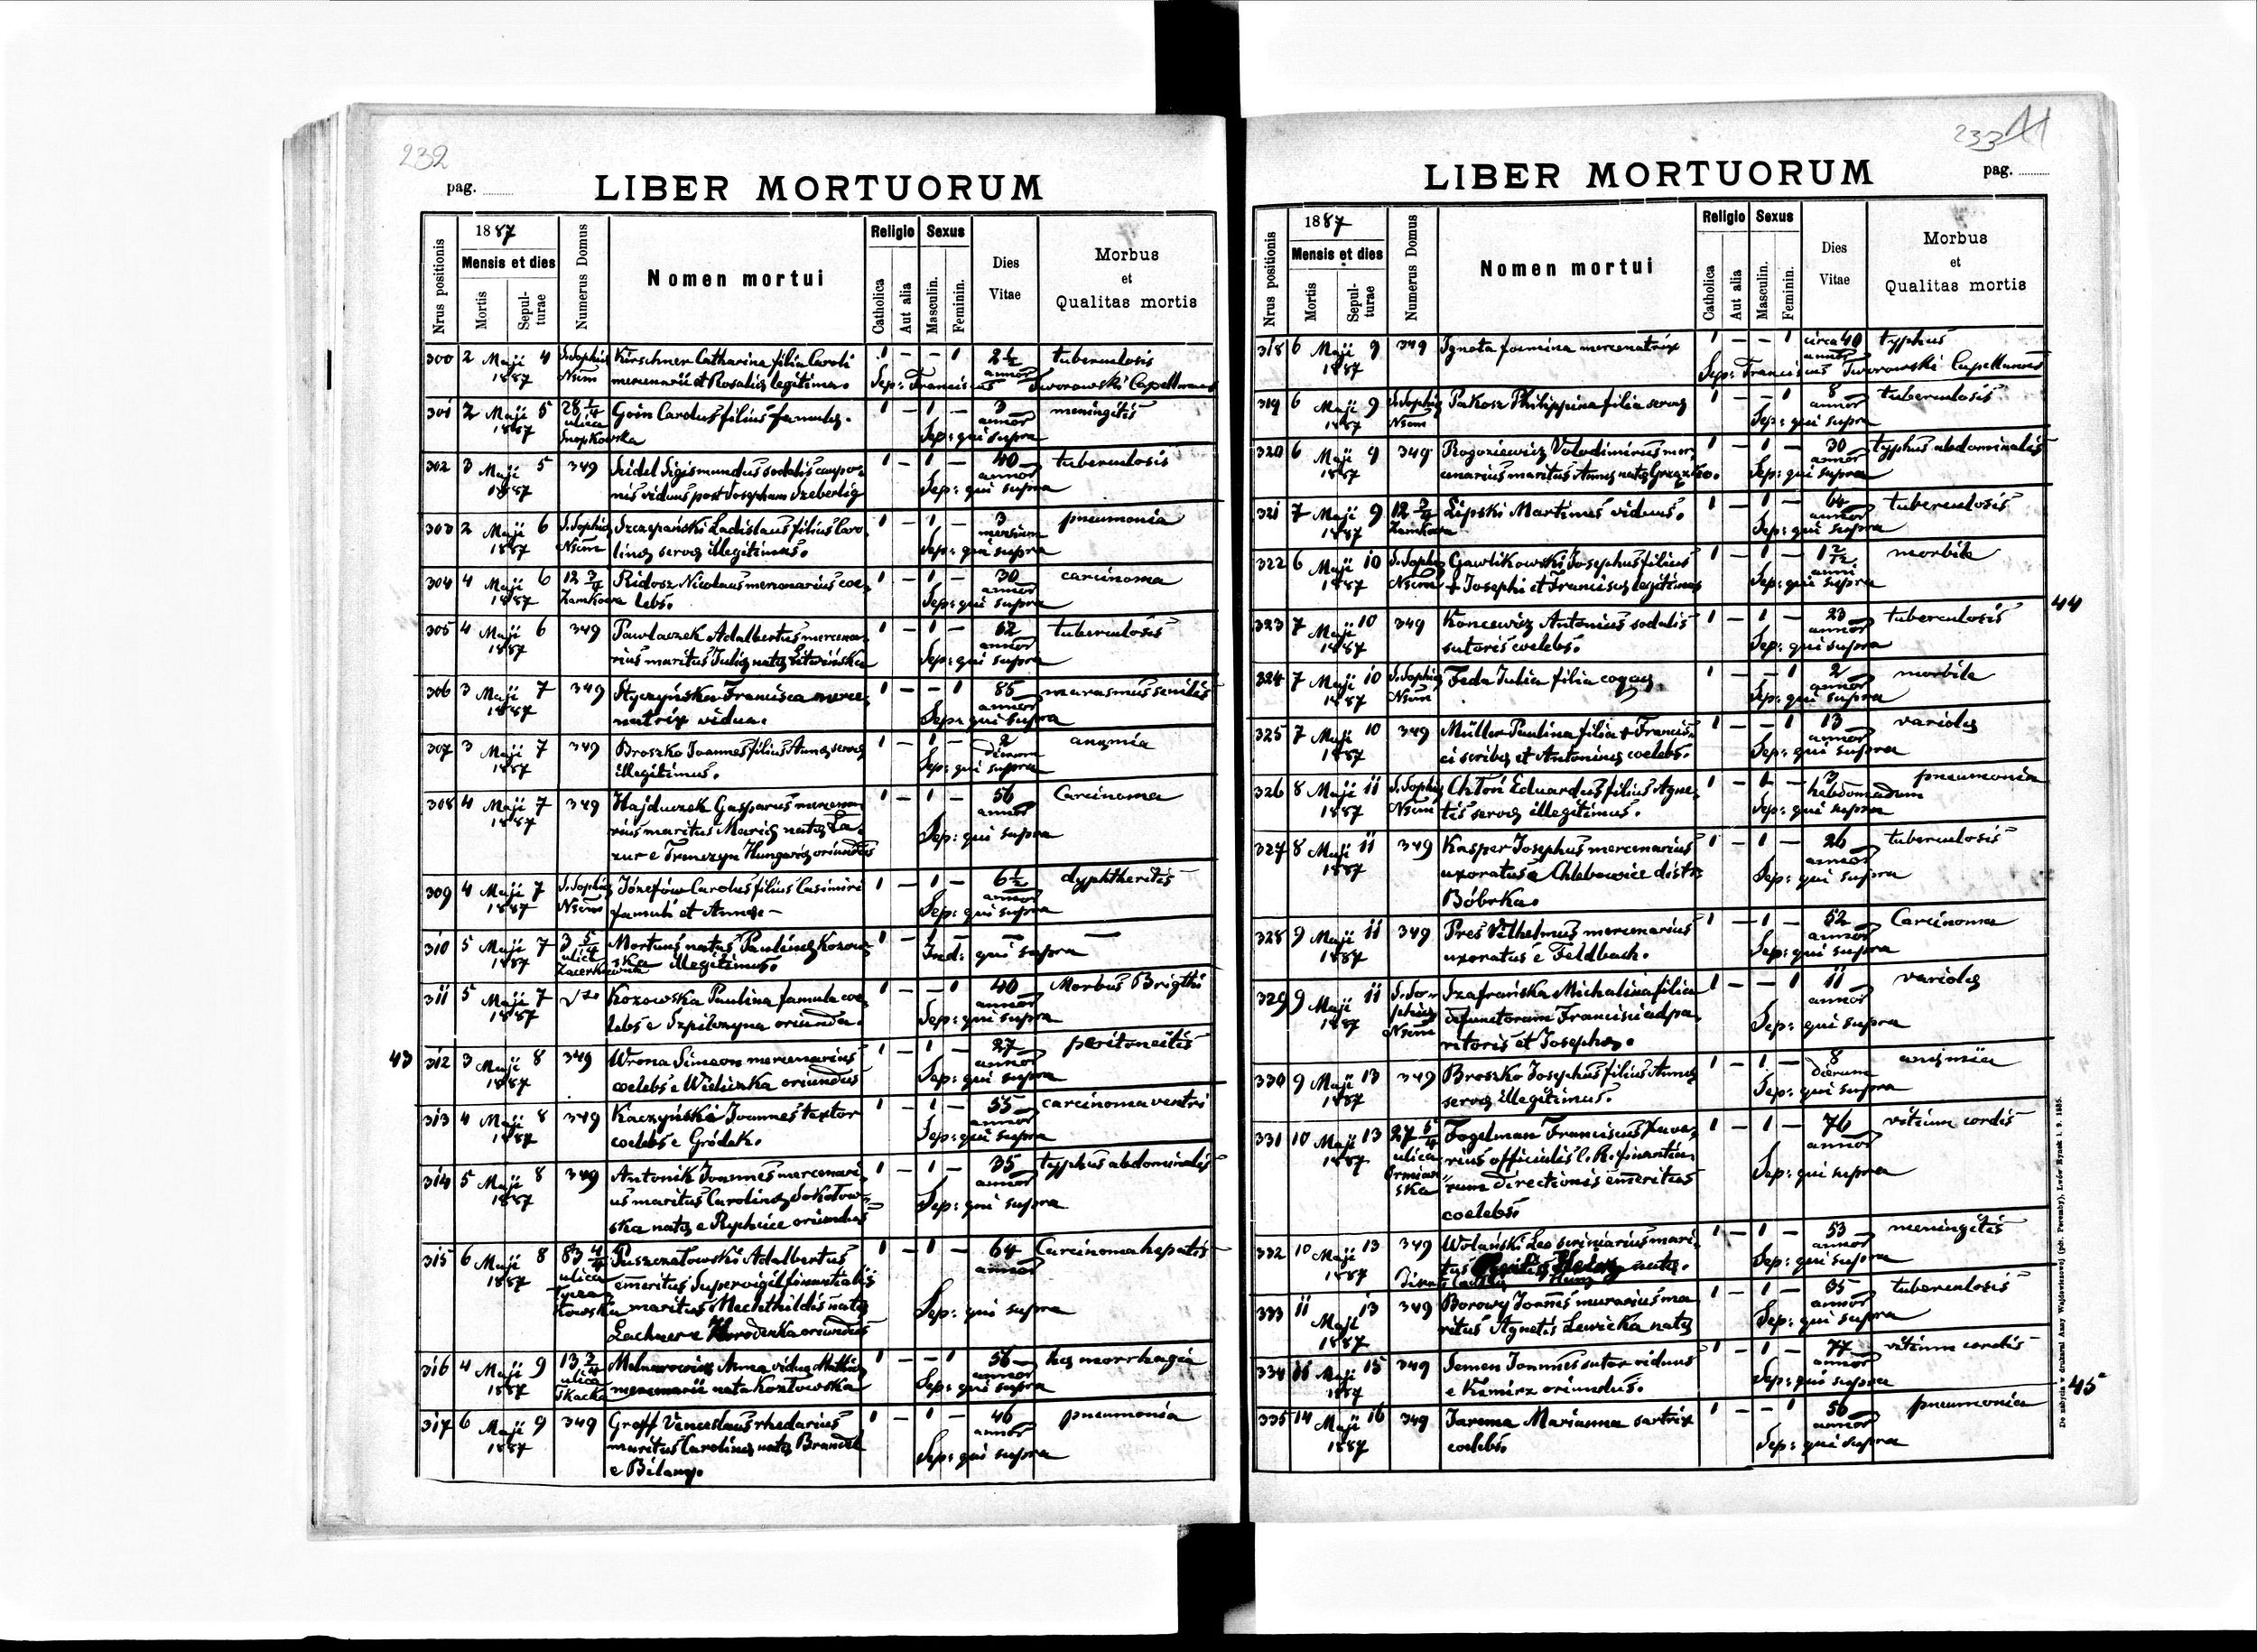 232
pag.
LIBER MORTUORUM
Nrus positionis
1887
Mensis et dies
Mortis
Sepulturae
Numerus Domus
Nomen mortui
Religio
Catholica
Aut alia
Sexus
Masculin.
Feminin.
Dies
Vitae
Morbus
et
Qualitas mortis
300 2 Maji 4 S. Sophia Kirschner Catharina filia Caroli 1 – – 1 2½ tuberculosis
1887 Nrum mercenarii et Rosaliæ legitima. annor
Sep: Franciscus Tworowski Capellanus
301 2 Maji 5 28 1/4 Goin Carolus filius famulæ. 1 – 1 – 3 meningitis
1887 ulica annor
Snopkowska Sep: qui supra
302 3 Maji 5 349 Seidel Sigismundus sodalis caupo- 1 – 1 – 40 tuberculosis
1887 nis viduus post Josepham Szeberlig annor
Sep: qui supra
303 2 Maji 6 S. Sophia Szczepański Ladislaus filius Caro- 1 – 1 – 3 pneumonia
1887 Nrum linæ servæ illegitimus. mensium
Sep: qui supra
304 4 Maji 6 12 3/4 Ridosz Nicolaus mercenarius coe- 1 – 1 – 30 carcinoma
1887 Zamkowa lebs. annor
Sep: qui supra
305 4 Maji 6 349 Pawlaczek Adalbertus mercena- 1 – 1 – 62 tuberculosis
1887 rius maritus Juliæ natæ Litwińska annor
Sep: qui supra
306 3 Maji 7 349 Styczyńska Francisca merce- 1 – – 1 85 marasmus senilis
1887 natrix vidua. annor
Sep: qui supra
307 3 Maji 7 349 Broszko Joannes filius Annæ servæ 1 – 1 – 2 anæmia
1887 illegitimus. dierum
Sep: qui supra
308 4 Maji 7 349 Hajduczek Gasparus mercena- 1 – 1 – 56 Carcinoma
1887 rius maritus Mariæ natæ La- annor
zur e Trenczyn Hungariæ oriundus Sep: qui supra
309 4 Maji 7 S. Sophia Józefów Carolus filius Casimiri 1 – 1 – 6½ dyphtheritis
1887 Nrum famuli et Annæ – annor
Sep: qui supra
310 5 Maji 7 3 5/4 Mortuus natus Paulinæ Kozow- 1 – 1 – – –
1887 ulica ska illegitimus. Ind: qui supra
311 5 Maji 7 Kozowska Paulina famula coe- 1 – – 1 40 Morbus Brigthi
1887 lebs e Szpilczyna oriunda. annor
Sep: qui supra
43 312 3 Maji 8 349 Wrona Simeon mercenarius 1 – 1 – 27 peritoneitis
1887 coelebs e Wieliczka oriundus annor
Sep: qui supra
313 4 Maji 8 349 Kaczyński Joannes textor 1 – 1 – 55 carcinoma ventri
1887 coelebs e Gródek. annor
Sep: qui supra
314 5 Maji 8 349 Antonik Joannes mercenari- 1 – 1 – 35 typhus abdominalis
1887 us maritus Carolinæ Sokołow- annor
ska natæ e Rychcice oriundus Sep: qui supra
315 6 Maji 8 83 4/4 Puszczałowski Adalbertus 1 – 1 – 64 Carcinoma hepatis
1887 ulica emeritus Supervigil financialis annor
maritus Mechthildis natæ Sep: qui supra
Lachner e Horodenka oriundus
316 4 Maji 9 13 3/4 Anna vidua Mathiæ 1 – – 1 56 hæmorrhagia
1887 ulica mercenarii nata Kozłowska annor
Tkacka Sep: qui supra
317 6 Maji 9 349 Graff Venceslaus rhedarius 1 – 1 – 46 pneumonia
1887 maritus Carolinæ natæ Brandel annor
e Bilany. Sep: qui supra
233
pag.
LIBER MORTUORUM
Nrus positionis
1887
Mensis et dies
Mortis
Sepulturae
Numerus Domus
Nomen mortui
Religio
Catholica
Aut alia
Sexus
Masculin.
Feminin.
Dies
Vitae
Morbus
et
Qualitas mortis
318 6 Maji 9 349 Ignota foemina mercenatrix 1 – – 1 circa 40 typhus
1887 annor
Sep: Franciscus Tworowski Capellanus
319 6 Maji 9 S. Sophia Pakosz Philippina filia servæ 1 – – 1 8 tuberculosis
1887 Nrum annor
Sep: qui supra
320 6 Maji 9 349 Rogoziewicz Volodimirus mer- 1 – 1 – 30 typhus abdominalis
1887 cenarius maritus Annæ natæ annor
Sep: qui supra
321 7 Maji 9 12 3/4 Lipski Martinus viduus. 1 – 1 – 64 tuberculosis
1887 Zamkowa annor
Sep: qui supra
322 6 Maji 10 S. Sophia Gawlikowski Josephus filius 1 – 1 – 1 2/12 morbili
1887 Nrum + Josephi et Franciscæ legitimus anni
Sep: qui supra
44
323 7 Maji 10 349 Koncewicz Antonius sodalis 1 – 1 – 23 tuberculosis
1887 sutoris coelebs. annor
Sep: qui supra
324 7 Maji 10 S. Sophia Feda Julia filia coquæ 1 – – 1 2 morbili
1887 Nrum annor
Sep: qui supra
325 7 Maji 10 349 Müller Paulina filia + Francis- 1 – – 1 13 variolæ
1887 ci scribæ et Antoninæ coelebs. annor
Sep: qui supra
326 8 Maji 11 S. Sophia Chłoń Eduardus filius Agne- 1 – 1 – 3 pneumonia
1887 Nrum tis servæ illegitimus. hebdomadum
Sep: qui supra
327 8 Maji 11 349 Kasper Josephus mercenarius 1 – 1 – 26 tuberculosis
1887 uxoratus e Chlebowice distr: annor
Bóbrka. Sep: qui supra
328 9 Maji 11 349 Pres Vilhelmus mercenarius 1 – 1 – 52 Carcinoma
1887 uxoratus e Feldbach. annor
Sep: qui supra
329 9 Maji 11 S. So- Szafrańska Michalina filia 1 – – 1 11 variolæ
1887 phia defunctorum Francisci adpa- annor
Nrum ritoris et Josephæ. Sep: qui supra
330 9 Maji 13 349 Broszko Josephus filius Annæ 1 – 1 – 8 anæmia
1887 servæ illegitimus. dierum
Sep: qui supra
331 10 Maji 13 27 5/4 Fogelman Franciscus Xave- 1 – 1 – 76 vitium cordis
1887 ulica rius officialis C. R. finantia- annor
Ormian- rum directionis emeritus Sep: qui supra
ska coelebs.
332 10 Maji 13 349 Wolański Leo scriniarius mari- 1 – 1 – 53 meningitis
1887 tus natæ. annor
Sep: qui supra
333 11 Maji 13 349 Borowy Joannes murarius ma- 1 – 1 – 35 tuberculosis
1887 ritus Agnetis Lewicka natæ annor
Sep: qui supra
334 11 Maji 15 349 Semen Joannes sutor viduus 1 – 1 – 77 vitium cordis
1887 e Kamirz oriundus. annor
Sep: qui supra
45
335 14 Maji 16 349 Jarema Marianna sartrix 1 – – 1 56 pneumonia
1887 coelebs. annor
Sep: qui supra
Do nabycia w drukarni Anny Wajdowiczowej (ph. Poremby), Lwów Rynek l. 9. 1885.